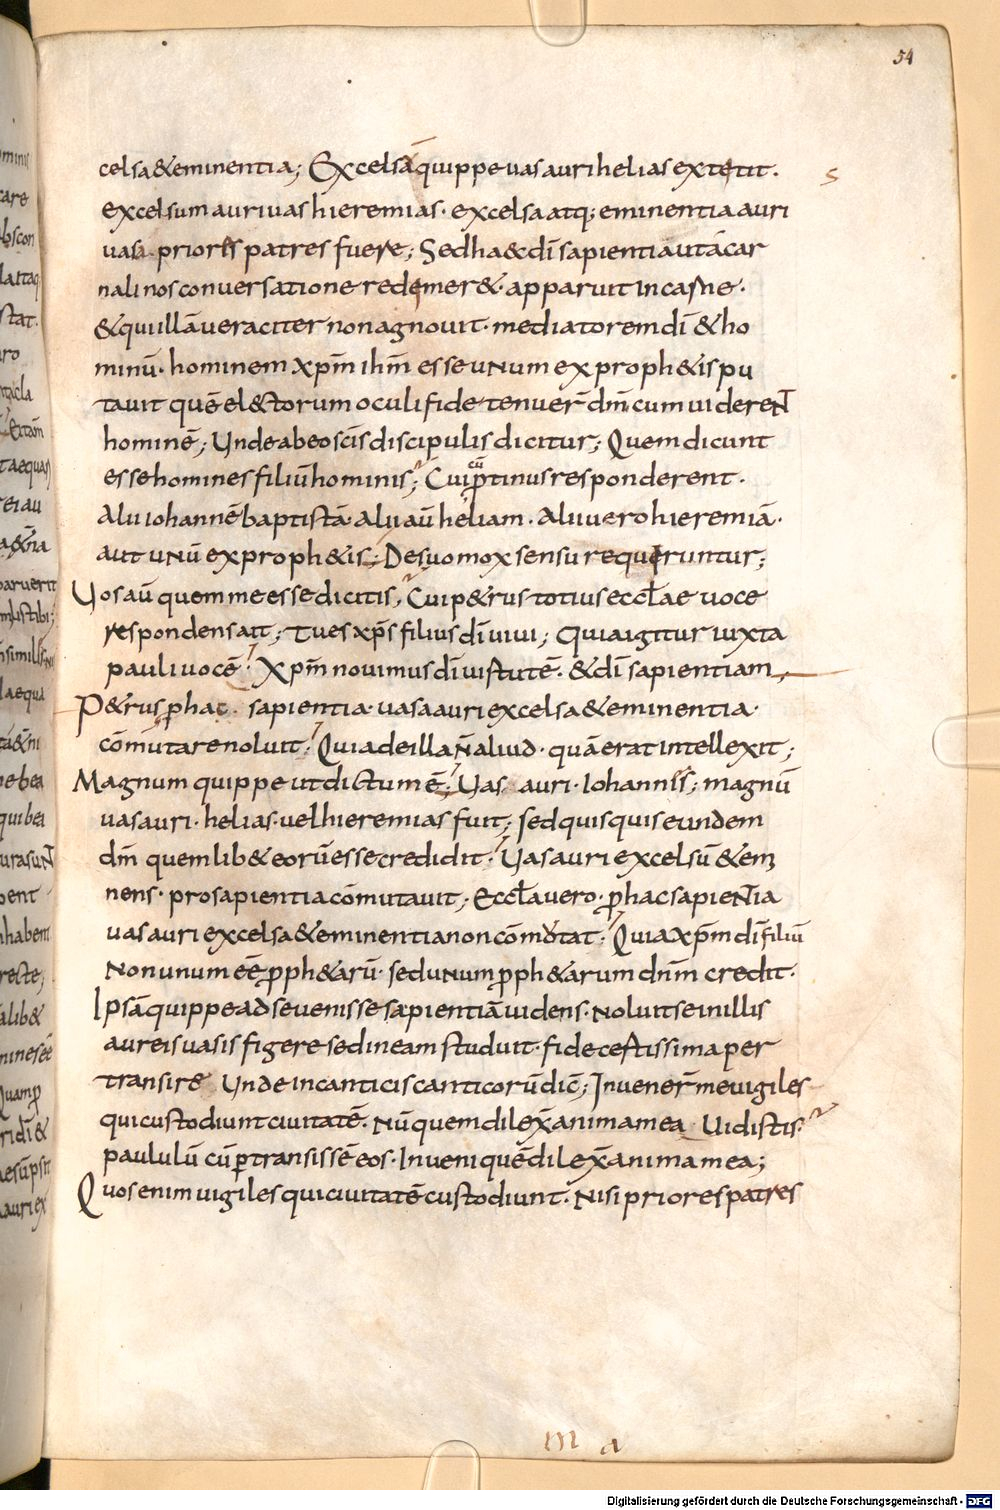 54
celsa & eminentia; Excelsa quippe uas auri helias extetit.
s
excelsum auri uas hieremias. excelsa atq; eminentia auri
uasa priores patres fuere; Sed ha& dī sapientia ut a car
nali nos conuersatione redemer&. apparuit in carne.
& qui illā ueraciter non agnouit. mediatorem dī & ho
minū. hominem xpm̄ ihm̄ esse unum ex proph&is pu
tauit quē electorum oculi fide tenuer̄ dm̄ cum uiderent
hominē; Unde ab eo scīs discipulis dicitur; Quem dicunt
esse homines filiū hominis; Cui cū p̱tinus responderent.
Alii iohannē baptistā. Alii aū heliam. Alii uero hieremiā.
aut unū ex proph&is; De suo mox sensu requeruntur;
Uos aū quem me esse dicitis; Cui p&rus totius eccłae uoce
respondens ait; Tu es xp̄s filius dī uiui; Quia igitur iuxta
pauli uocē. Xpm̄ nouimus dī uirtutē. & dī sapientiam
P&rus p̱ hac sapientia. uasa auri excelsa & eminentia.
cōmutare noluit; Quia de illa n̄ aliud. quā erat intellexit;
Magnum quippe ut dictum ē; Uas auri. Iohannis; magnū
uas auri. helias. uel hieremias fuit; sed quisquis eundem
dm̄ quemlib& eorū esse credidit. Uas auri excelsū & emi
nens. pro sapientia cōmutauit; Eccła uero. p̱ hac sapientia
uas auri excelsa & eminentia non cōmutat; Quia xpm̄ dī filiū
Non unum eē p̱ph&arū. sed unum p̱ph&arum dnm̄ credit.
Ipsā quippe ad se uenisse sapientiā uidens. Noluit se in illis
aureis uasis figere sed in eam studuit. fide certissima per
transire Unde in canticis canticorū dic̄; Inuener̄ me uigiles
qui custodiunt ciuitatē. Nū quem dilex̄ anima mea Uidistis.
paululū cū p̱transissē eos. Inueni quē dilex̄ anima mea;
Quos enim uigiles qui ciuitatē custodiunt. Nisi priores patres
m a
Digitalisierung gefördert durch die Deutsche Forschungsgemeinschaft - DFG